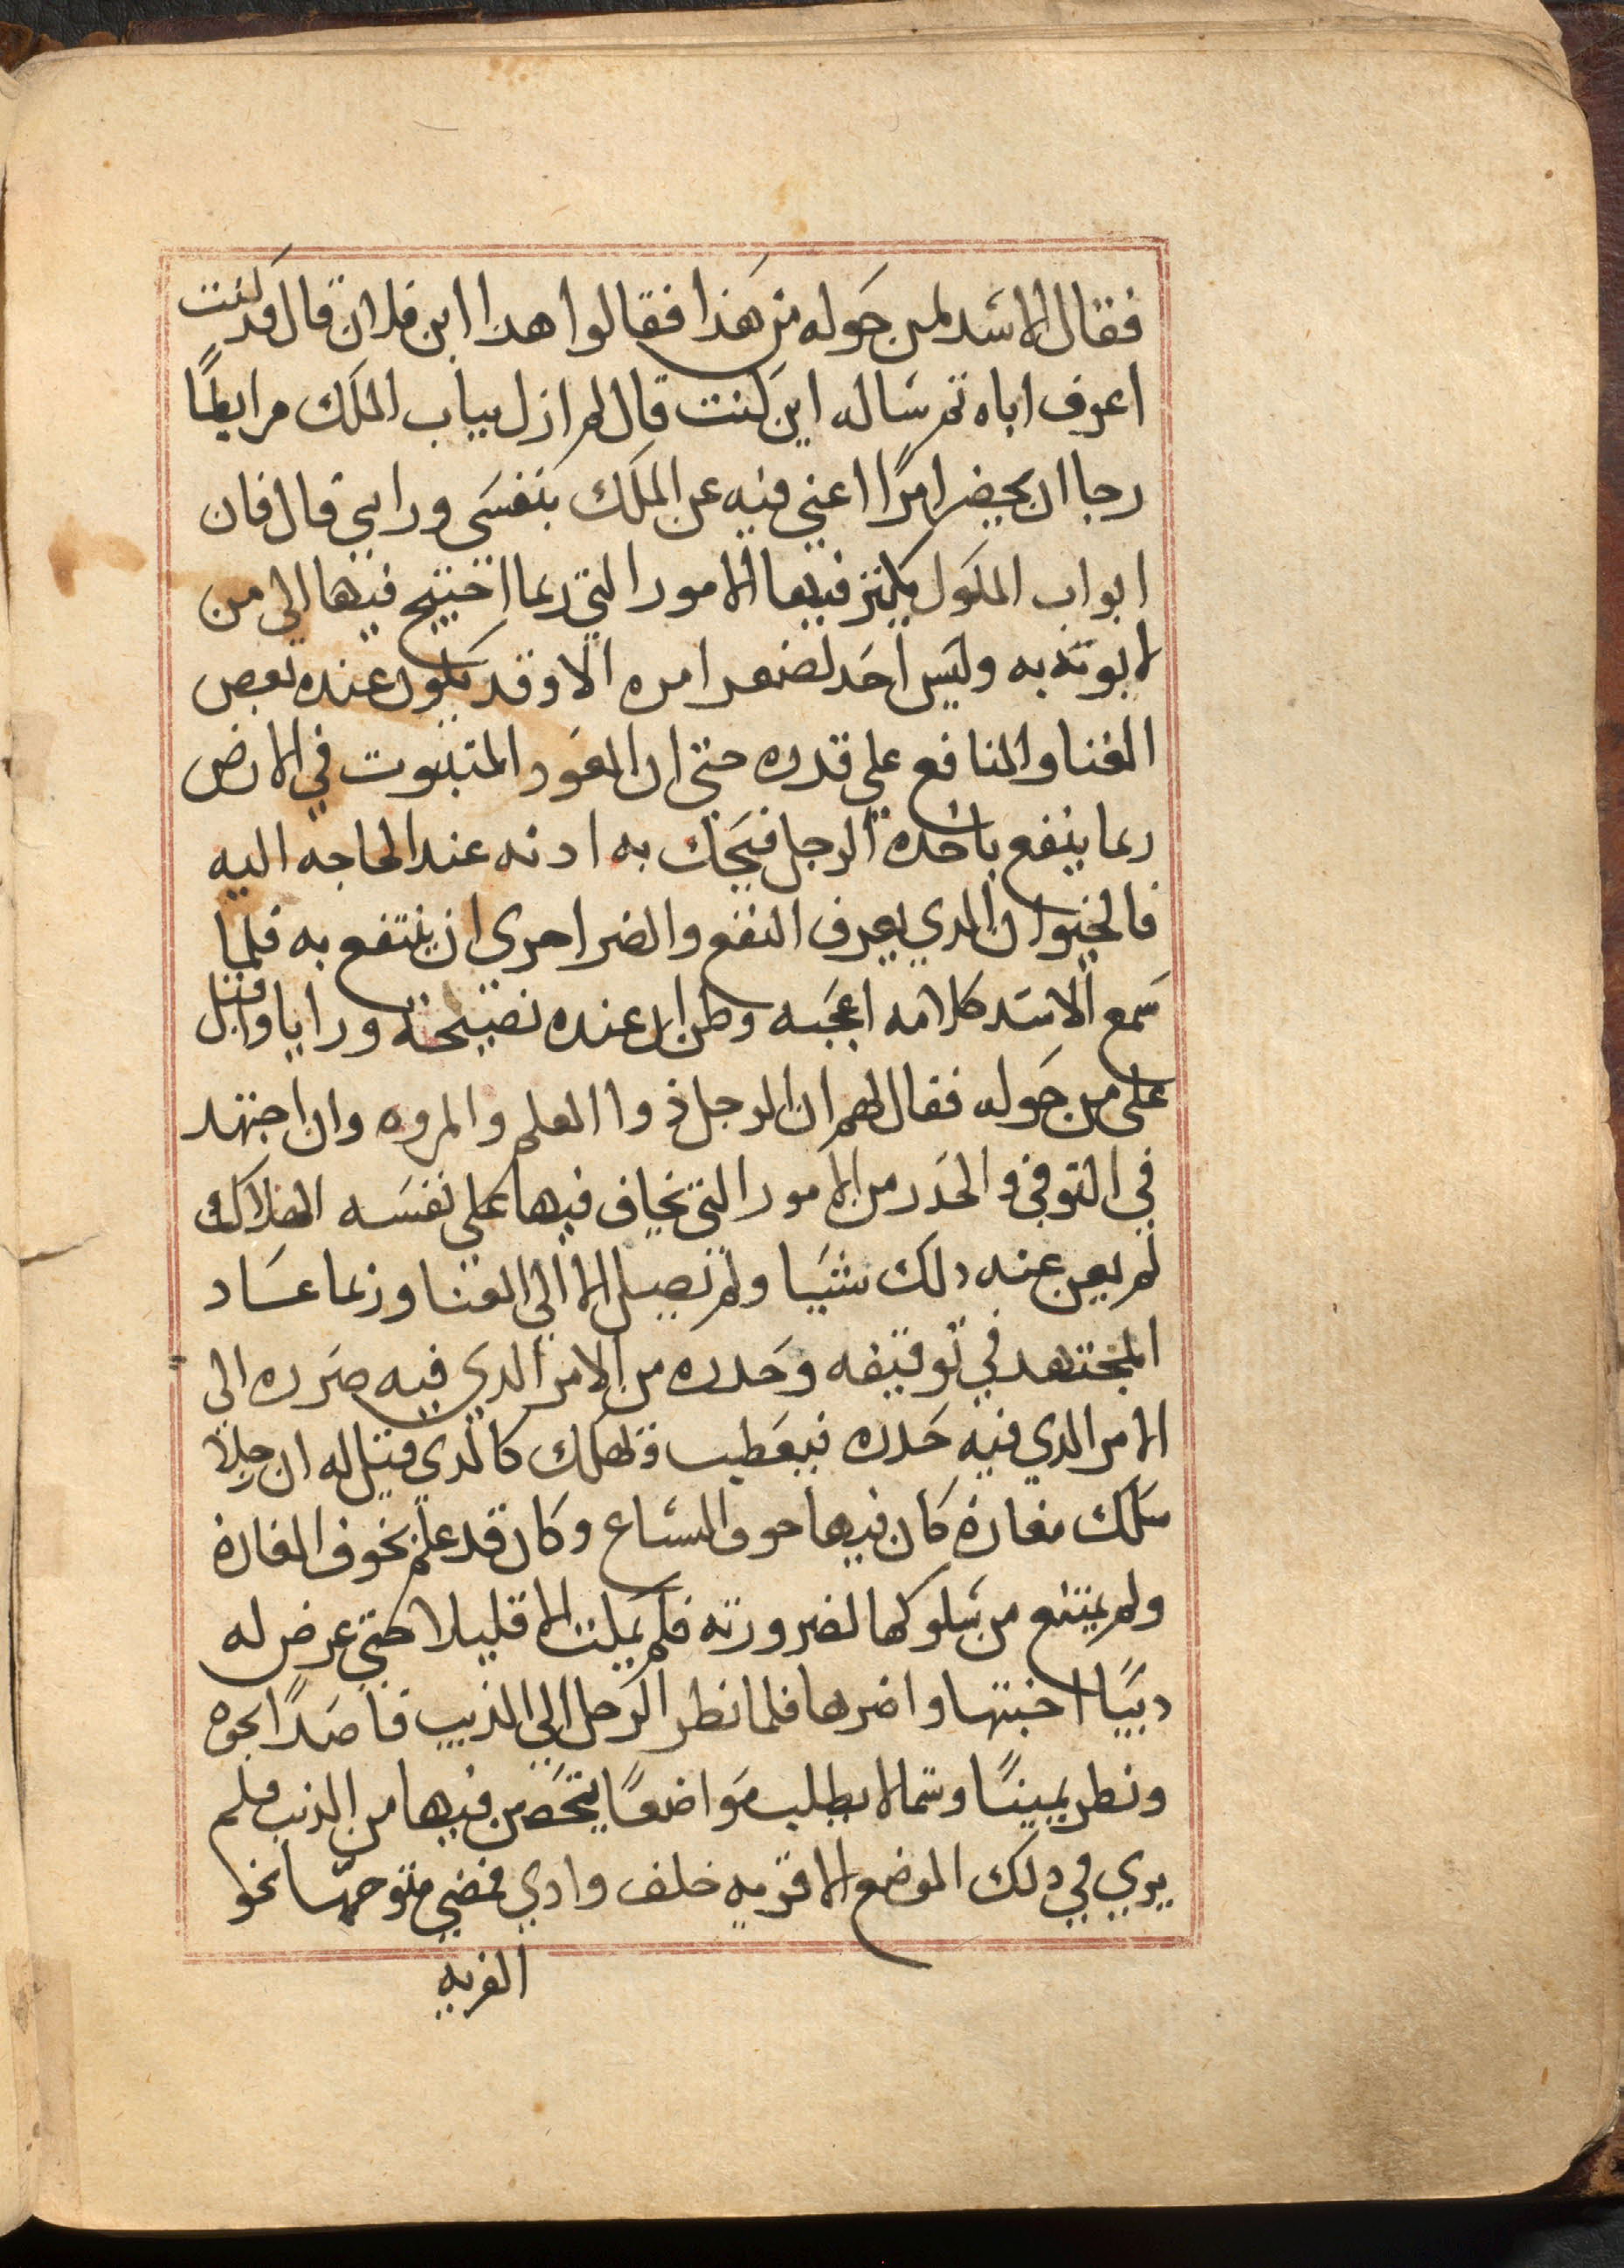 فقال الاسد لمن حوله من هذا فقالوا هدا ابن فلان قال قد كنت
اعرف اباه ثم ساله اين كنت قال لم ازل بباب الملك مرابطًا
رجا ان يحضر امرًا اعني فيه عن الملك بنفسي ورايي قال فان
ابواب الملول يكثر فيها الامور التي ربما احتيج فيها الى من
لا يوبه به وليس احد لصغر امره الا وقد يكون عنده بعض
الغنا والمنافع علي قدره حتى ان العود المتبوت في الارض
ربما ينفع ياخده الرجل فيحك به ادنه عند الحاجه اليه
فالحيوان الدي يعرف النفع والضر احرى ان ينتفع به فلما
سمع الاسد كلامه اعجبه وظن ان عنده نصيحة ورايا واقبل
على من حوله فقال لهم ان الرجل ذوا العلم والمروه وان اجتهد
في التوقي والحدر من الامور التي يخاف فيها علي نفسه الهلاك
لم يغن عنه دلك شيا ولم تصل الا الي الفنا وربما عساد
المجتهد في توقيفه وحدره من الامر الدي فيه ضرره الى
الامر الدي فيه حدره فيعطب وتهلك كالدي قيل له ان رجلا
سلك مغارة كان فيها خوف السباع وكان قد علم بخوف المغارة
ولم يمتنع من سلوكها لضرورته فلم يملت الا قليلا حتى عرض له
ديبًا اخبتها واضرها فلما نظر الرجل الي الذيب قاصدًا نحوه
ونظر يمينًا وشمالا يطلب مواضعًا يتحصن فيها من الذيب فلم
يري في دلك الموضع الا قريه خلف وادي فمضي متوجهًا نحو
القريه